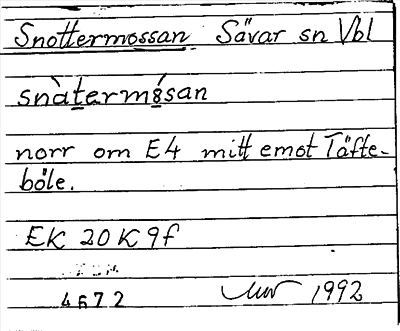 Snottermossan Sävar sn Vbl
snàtermósan
norr om E4 mitt emot Täfte-
böle.
EK 20 K 9f
4672 1992